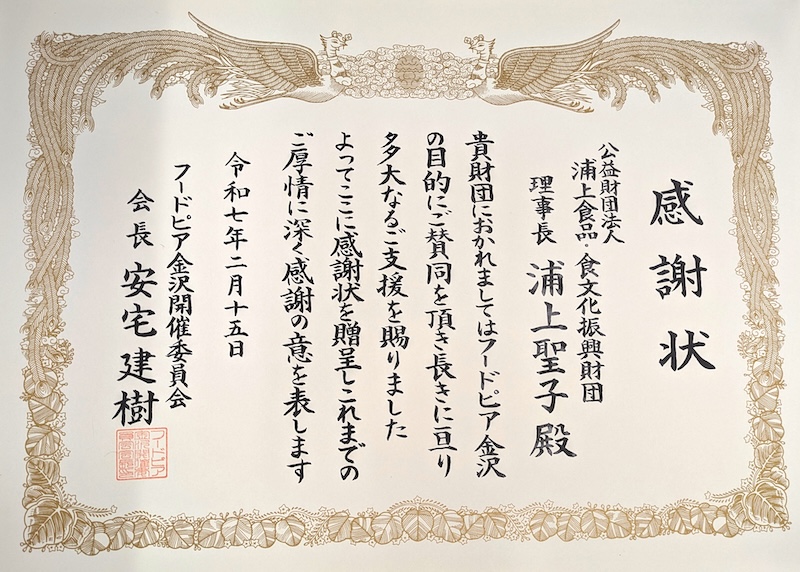 感謝状
公益財団法人
浦上食品・食文化振興財団
理事長 浦上聖子殿
貴財団におかれましてはフードピア金沢
の目的にご賛同を頂き長きに亘り
多大なるご支援を賜りました
よってここに感謝状を贈呈しこれまでの
ご厚情に深く感謝の意を表します
令和七年二月十五日
フードピア金沢開催委員会
会長 安宅建樹